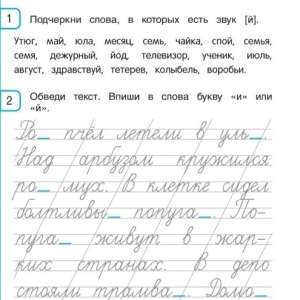 1 Подчеркни слова, в которых есть звук [й].
Утюг, май, юла, месяц, семь, чайка, спой, семья,
семя, дежурный, йод, телевизор, ученик, июль,
август, здравствуй, тетерев, колыбель, воробьи.
2 Обведи текст. Впиши в слова букву «и» или
«й».
Ро_ пчёл летели в уль_.
Над арбузом кружился
ро_ мух. В клетке сидел
болтливы_ попуга_. По-
пуга_ живут в жар-
ких странах. В депо
стояли трамва_. Домо_